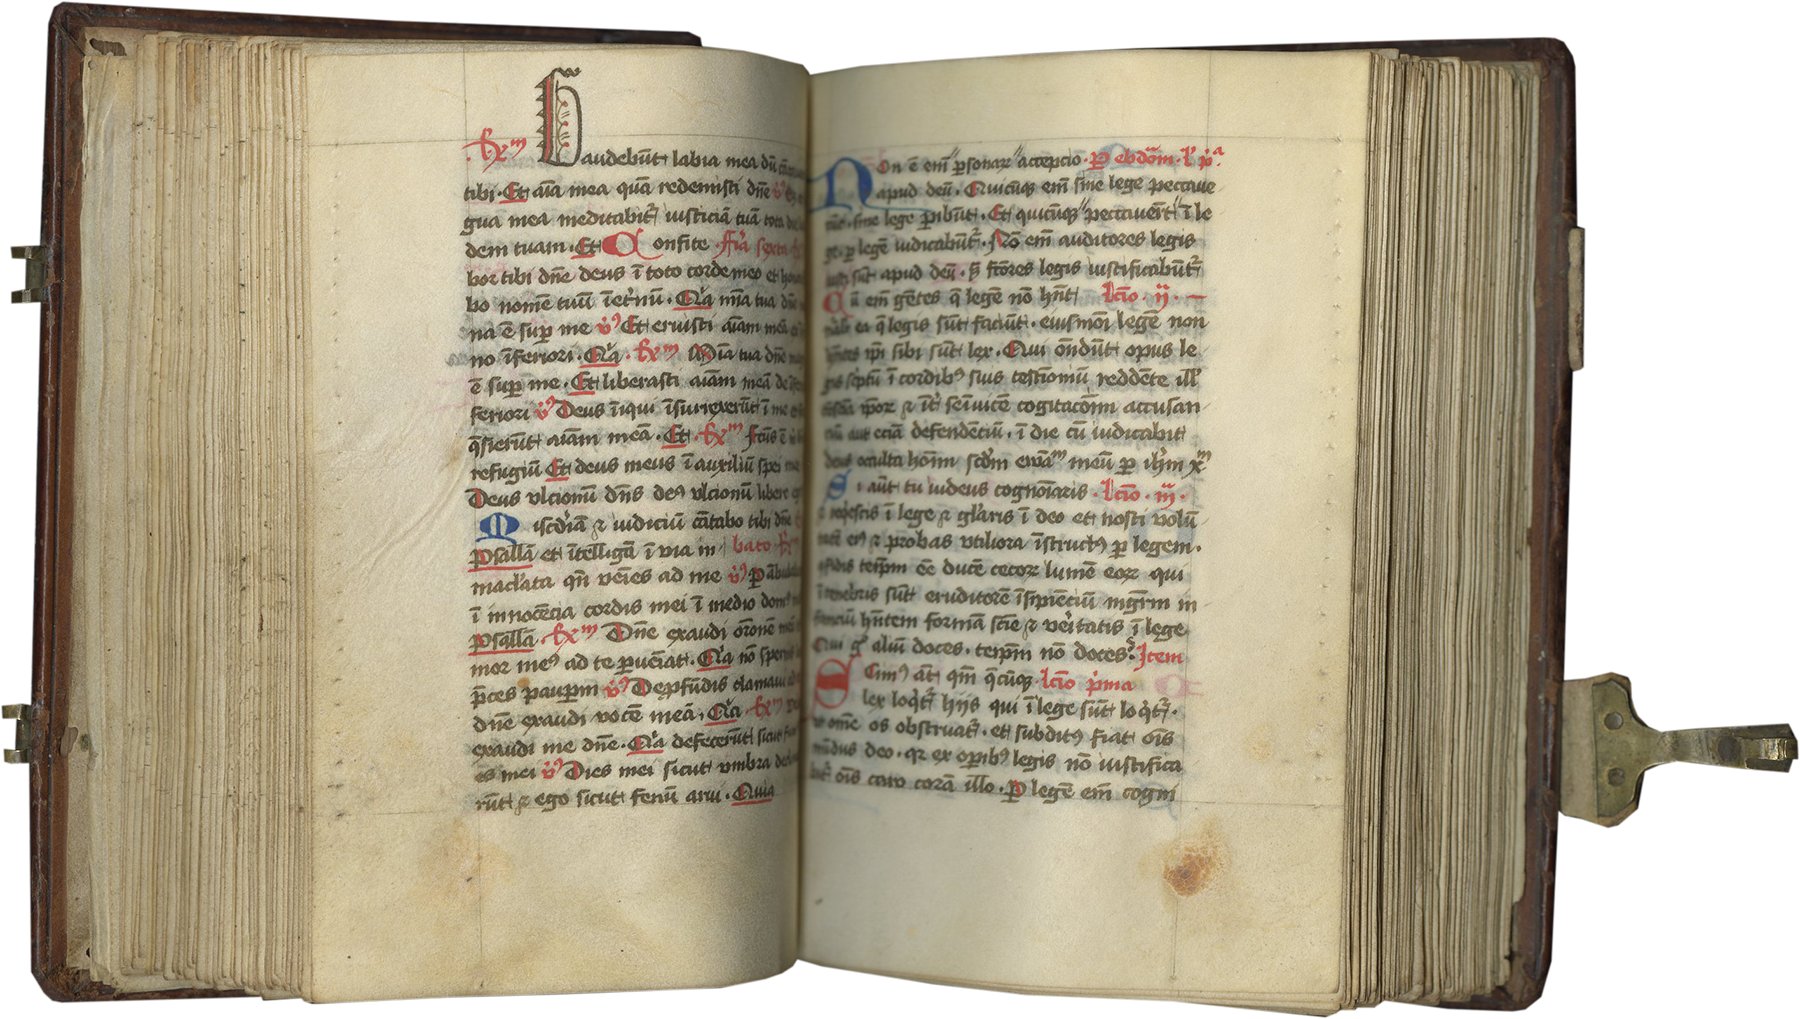 .Rx̄m Gaudebūt labia mea dū
tibi. Et aīa mea quā redemisti dn̄e v̇
gua mea meditabit̄ iusticiā tuā tota
dem tuam. Et Confite. f̄ia sexta
bor tibi dn̄e deus ī toto corde meo et
bo nomē tuū īet'nū. Q'a mīa tua dn̄e
na ē sup̄ me v̇ Et eruisti aīam meā
no īferiori. Q'a. Rx̄m Mīa tua dn̄e
ē sup̄ me. Et liberasti aīam meā de
feriori v̇ Deus īiqui īsurrexerūt ī me
q̄sierūt aīam meā. Et. Rx̄m fcūs ē
refugiū Et deus meus ī auxiliū spei
Deus vlcionū dn̄s deꝰ vlcionū libere
Miscd'iā ⁊ iudiciū cātabo tibi dn̄e
Psallā et ītelligā ī via in bato
maclata qn̄ veīes ad me v̇ P
ī innocēcia cordis mei ī medio domꝰ
Psallā. Rx̄m Dn̄e exaudi ōronē
mor meꝰ ad te p̱ueīat. Q'a nō
p̄ces paup̱m v̇ De p̱fūdis clamaui
dn̄e exaudi vocē meā. Q'a. Rx̄m
exaudi me dn̄e. Q'a defecerūt sicut
es mei v̇ Dies mei sicut vmbra
rūt ⁊ ego sicut fenū arui. Quia
Non ē em̄ p̱sonaꝝ accepcio. P̱ ebdōm. l' p'a.
apud deū. Quicūqꝫ em̄ sine lege peccaue
sine lege p̱ibūt. Et quicūqꝫ peccauer̄t ī le
ge. p̱ legē iudicabūt'. Nō em̄ auditores legis
sūt apud deū. s̄ fcōres legis iustificabūt'
Cū em̄ gētes q̄ legē nō hn̄t lcīo. ij.
ea q̄ legis sūt faciūt. eiusmōi legē non
ip̄i sibi sūt lex. Qui on̄dūt opus le
gis sc'ptū ī cordibꝰ suis testīomū reddēte ill'
ip̄oꝝ ⁊ īt' seīuicē cogitacōīm accusan
aut eciā defendēciū. ī die cū iudicabit
deus occulta hoīm scd̄m ewām meū p̱ ih̄m x̄m
Si aūt tu iudeus cognoīaris. lcīo. iij.
ī lege ⁊ gl'aris ī deo et nosti volū
eiꝰ ⁊ probas vtiliora īstructꝰ p̱ legem.
teip̄m eē ducē cecoꝝ lumē eoꝝ qui
ī tenebris sūt eruditorē īsipiēciū mgr̄m in
hn̄tem formā scīe ⁊ ver'itatis ī lege
Qui g° aliū doces. teip̄m nō doces? Item
Scimꝰ aūt qm̄ q̄cūqꝫ lcīo p'ma
lex loq'tr̄ hijs qui ī lege sūt loq'tr̄.
om̄e os obstruat'. et subditꝰ fiat oīs
mūdus deo. qꝛ ex op̱ibꝰ legis nō iustifica
oīs caro corā illo. P̱ legē em̄ cogni